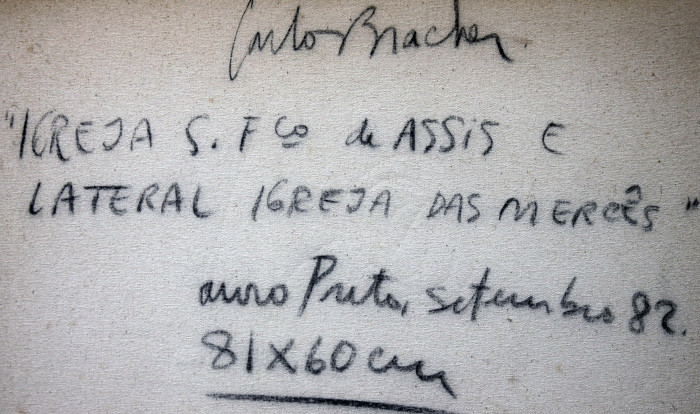 Carlos Bracher
"IGREJA S. Fco de ASSIS E
LATERAL IGREJA DAS MERCÊS"
ouro Preto, setembro 82.
81X60cm